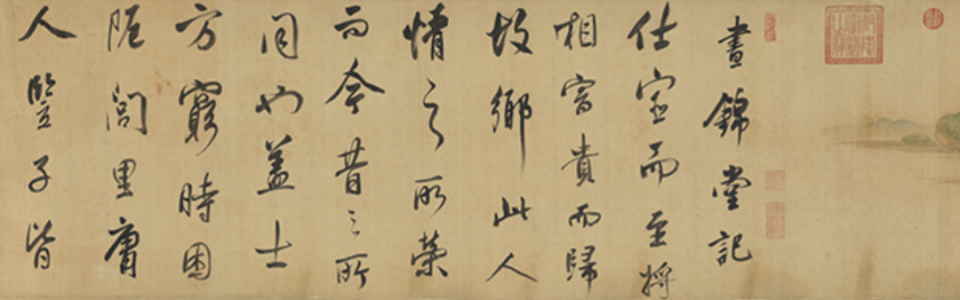 晝錦堂記
仕宦而至將
相富貴而歸
故鄉此人
情之所榮
而今昔之所
同也蓋士
方窮時困
阨閭里庸
人豎子皆